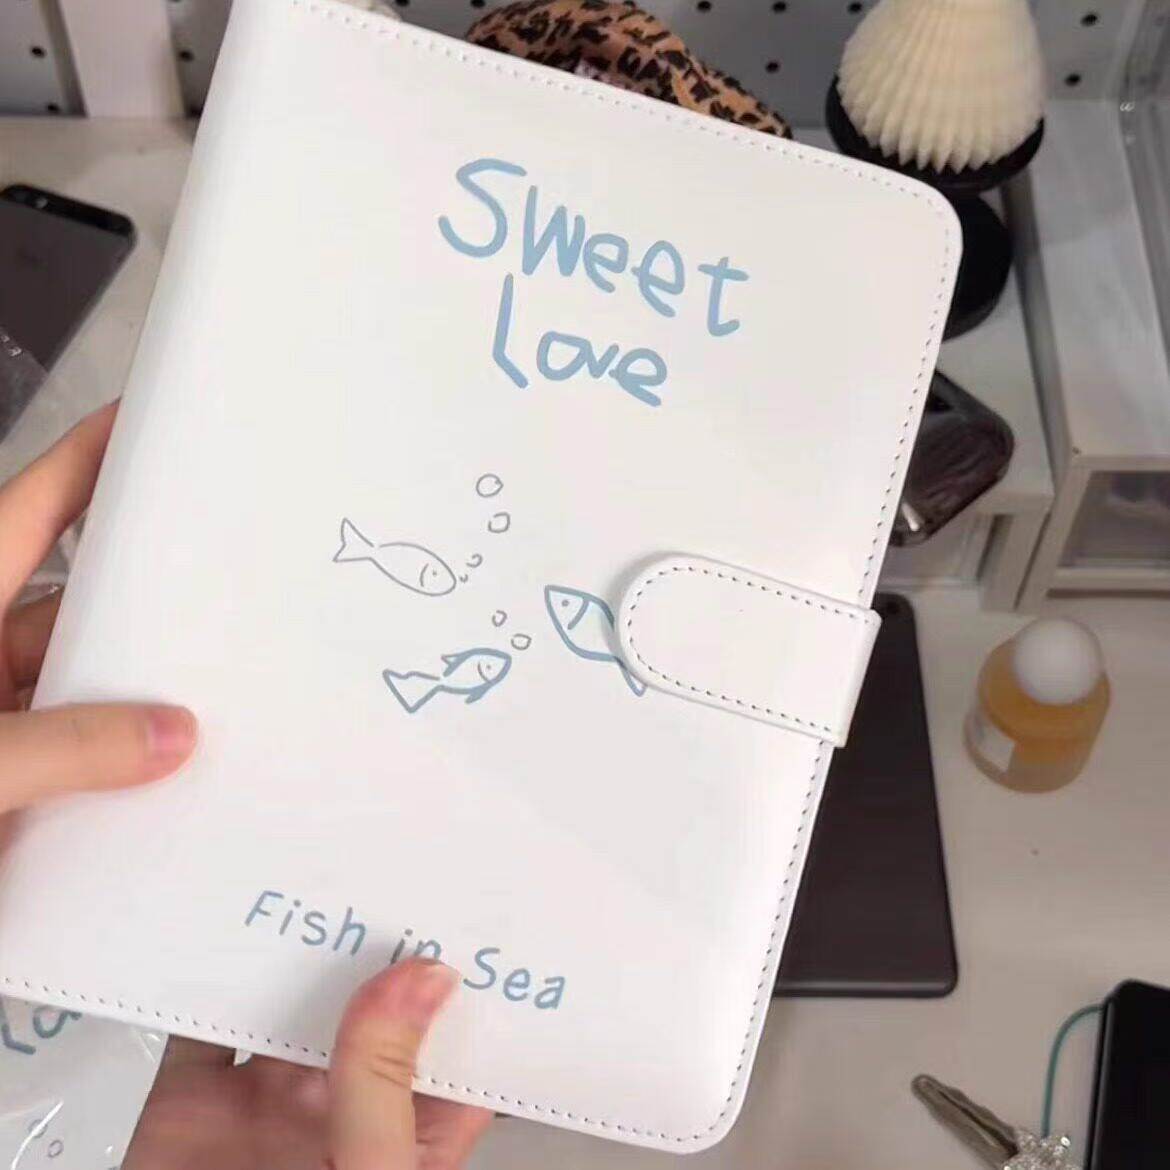 Sweet
Love
Fish in Sea